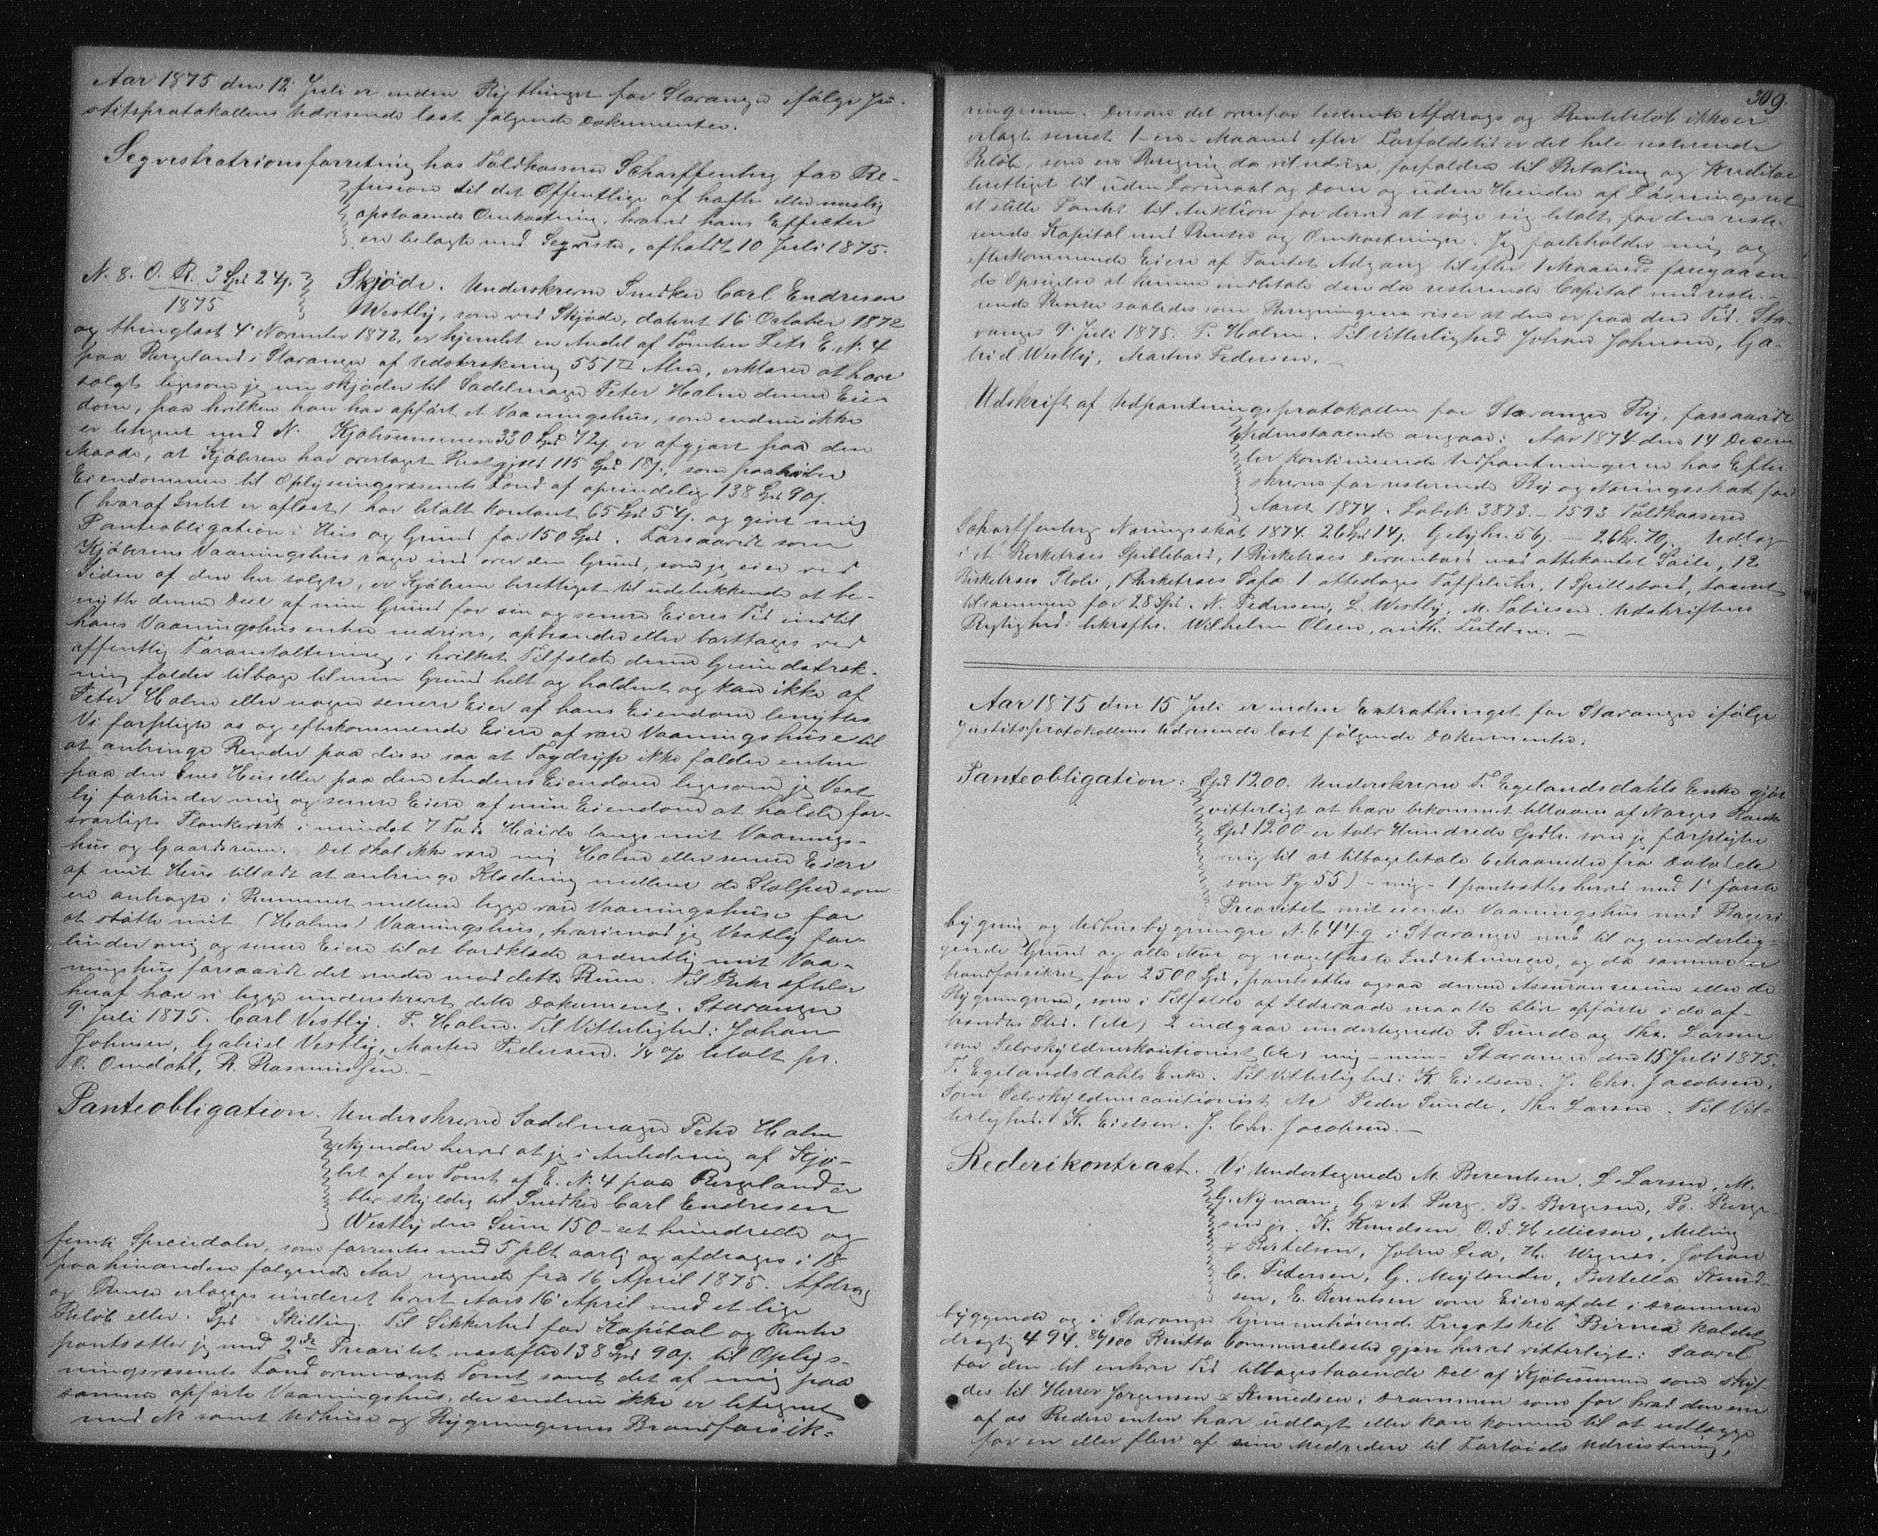 Aar 1875 den 12 Juli er under Bythinget for Stavanger ifølge Ju-
stitsprotokollens Udvisende læst følgende Dokumenter.
Seqvestrationsforretning hos Toldkasserer Scharffenberg for Re-
fusion til det Offentlige af havte eller muelig
opstaaende Omkostning, hvorved hans Effecter
er belagte med Seqvester, afholdt 10 Juli 1875.
N. 8. O. R. 3 Spd 24 s.
1875
Skjøde. Underskrevne Snedker Carl Endresen
Westly, som ved Skjøde, dateret 16 October 1872
og thinglæst 4 November 1872, er hjemlet en Andel af Tomten Litr E. N. 4
paa Bergeland i Stavanger af Udstrækning 551 □ Alen, erklærer at have
solgt ligesom jeg nu skjøder til Sadelmager Peter Holm denne Eien-
dom, paa hvilken han har opført et Vaaningshus, som endnu ikke
er betegnet med N. Kjøbesummen 330 Spd 72 s. er afgjort paa den
Maade, at Kjøberen har overtaget Restgjæld 115 Spd 18 s., som paahviler
Eiendommen til Oplysningsvæsenets Fond af oprindelig 138 Spd 90 s.
(hvoraf Intet er aflæst) har betalt kontant 65 Spd 54 s. og givet mig
Panteobligation i Hus og Grund for 150 Spd. Forsaavidt som
Kjøberens Vaaningshus rager ind over den Grund, som jeg eier ved
Siden af den her solgte, er Kjøberen berettiget til udelukkende at be-
nytte denne Deel af min Grund for sin og senere Eieres Tid indtil
hans Vaaningshus enten nedrives, afbrænder eller borttages ved
offentlig Foranstaltning, i hvilket Tilfælde denne Grundstræk-
ning falder tilbage til min Grund helt og holdent og kan ikke af
Peter Holm eller nogen senere Eier af hans Eiendom benyttes.
Vi forpligte os og efterkommende Eiere af vore Vaaningshuse til
at anbringe Render paa disse saa at Tagdryp ikke falder enten
paa den Enes Hus eller paa den Andens Eiendom ligesom jeg Vest-
ly forbinder mig og senere Eiere af min Eiendom at holde for-
svarligt Plankeværk i mindst 7 Fods Høide langs mit Vaanings-
hus og Gaardsrum. Det skal ikke være mig Holm eller senere Eiere
af mit Hus tilladt at anbringe Klædning mellem de Stolper som
ere anbragte i Rummet mellem begge vore Vaaningshuse for
at støtte mit (Holms) Vaaningshus, hvorimod jeg Vestly for-
binder mig og senere Eiere til at bordklæde ordentlig mit Vaa-
ningshus forsaavidt det vender mod dette Rum. Til Bekræftelse
heraf har vi begge underskrevet dette Dokument. Stavanger
9 Juli 1875. Carl Vestly. P. Holm. Til Vitterlighed: Johan
Johnsen, Gabriel Vestly, Morten Pedersen. 1/4 % betalt pr.
O. Omdahl, R. Rasmussen.
Panteobligation. Underskrevne Sadelmager Peter Holm
erkjender herved at jeg i Anledning af Kjø-
bet af en Tomt af E. N. 4 paa Bergeland er
blev skyldig til Snedker Carl Endresen
Westly den Sum 150 - et hundrede og
femti Speciedaler, som forrentes med 5 pCt aarlig og afdrages i 18
paa hinanden følgende Aar regnet fra 16 April 1875. Afdrag
og Rente erlægges underet hvert Aars 16 April med et lige
Beløb eller Spd Skilling. Til Sikkerhed for Kapital og Renter
pantsætter jeg med 2de Prioritet næstefter 138 Spd 90 s. til Oplys-
ningsvæsenets Fond ovennævnte Tomt samt det af mig paa
samme opførte Vaaningshus, der endnu ikke er betegnet
med N. samt Udhuse og Bygningernes Brandforsik-
309.
ringssum. Dersom det ovenfor bestemte Afdrags og Rentebeløb ikke er
erlagt senest 1 - en - Maaned efter Forfaldstid er det hele resterende
Beløb, som en Beregning da vil udvise, forfalden til Betaling og Kreditor
berettiget til uden Lovmaal og Dom og uden Hinder af Løsningsret
at stille Pantet til Auktion for derved at søge sig betalt for den reste-
rende Kapital med Renter og Omkostninger. Jeg forbeholder mig og
efterkommende Eiere af Pantet Adgang til efter 1 Maaneds foregaaen-
de Opsigelse at kunne indbetale den da resterende Capital med reste-
rende Renter saaledes som Beregningen viser at den er paa den Tid. Sta-
vanger 9 Juli 1875. P. Holm. Til Vitterlighed Johan Johnsen, Ga-
briel Westly, Morten Pedersen.
Udskrift af Udpantningsprotokollen for Stavanger By, forsaavidt
Nedenstaaende angaar: Aar 1874 den 14 Decem-
ber kontinuerede Udpantningerne hos Efter-
skrevne for resterende By og Næringsskat for
Aaret 1874. Løbek. 3873 - 1593 Toldkasserer
Scharffenberg Næringsskat 1874. 26 Spd 14 s. Gebyhr. 56 s. - 26 Sp. 70. Udlæg
i et Birketræes Spillebord, 1 Birketræes Divanbord med ottekantet Søile, 12
Birketræs Stole, 1 Birketræes Sofa 1 ottedages Taffeluhr, 1 Spillebord, taxeret
tilsammen for 28 Spd. N. Pedersen, L. Westly, M. Tobiesen. Udskriftens
Rigtighed bekræftes. Wilhelm Olsen, auth. Fuldm.
Aar 1875 den 15 Juli er under Extrathinget for Stavanger ifølge
Justitsprotokollens Udvisende læst følgende Dokumenter.
Panteobligation: Spd 1200. Underskrevne T. Egelandsdahls Enke gjør
vitterligt at have bekommet tillaans af Norges Bank
Spd 1200 er tolv Hundrede Spdlr. som jeg forpligter
mig til at tilbagebetale 6 Maaneder fra Dato (de
som Pg 55) - mig - 1 pantsættes herved med 1' første
Prioritet mit eiende Vaaningshus med Bageri-
bygning og Udhusbygninger N. 644g i Stavanger med til og underlig-
gende Grund og alle Mur og naglefaste Indretninger, og da samme er
brandforsikret for 2500 Spd, pantsættes ogsaa denne Assurancesum eller de
Bygninger, som i Tilfælde af Ildsvaade maatte blive opførte i de af-
brændtes Sted. (etc) 2 indgaar undertegnede P. Sunde og Ths. Larsen
som Selvskyldnerkautionist (etc) mig - min - Stavanger den 15 Juli 1875.
T. Egelandsdahls Enke. Til Vitterlighed: K. Eielsen. J. Chr. Jacobsen.
Som Selvskyldnercautionist etc Peder Sunde, Ths Larsen. Til Vit-
terlighed: K. Eielsen. J. Chr. Jacobsen.
Rederikontract. Vi Undertegnede M. Berentsen, L. Larsen, M.
G. Nyman, G & A Berg, B. Børgesen, Po. Berge
sen jr. K. Knudsen O. S. Helliesen, Meling
& Bertelsen, John Lea, H. Wignæs, Johan
C. Pedersen, G. Meylander, Bertella Knud-
sen, E. Berentsen som Eiere af det i Drammen
byggende og i Stavanger hjemmehørende Fregatskib "Birma" kaldet
drægtig 494. 86/100 Brutto Commercelæster gjøre herved vitterligt: saavel
for den til enhver Tid tilbagestaaende Del af Kjøbesummen som skyl-
des til Herrer Jørgensen & Knudsen i Drammen som for hvad den ene
af os Redere enten har udlagt eller kan komme til at udlægge
for en eller flere af sine Medredere til Fartøiets Udrustning,